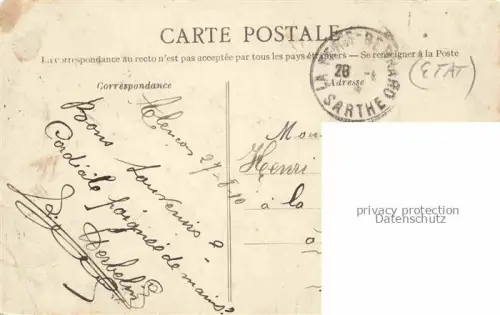 CARTE POSTALE
La correspondance au recto n'est pas acceptée par tous les pays étrangers — Se renseigner à la Poste
Correspondance
Adresse
LA FERTÉ-BERNARD
28
SARTHE
(ETAT)
Alençon 27-8-10
Bons souvenirs &
Cordiale poignée de mains
Derbelin
Mon
Henri
à la
à
privacy protection
Datenschutz